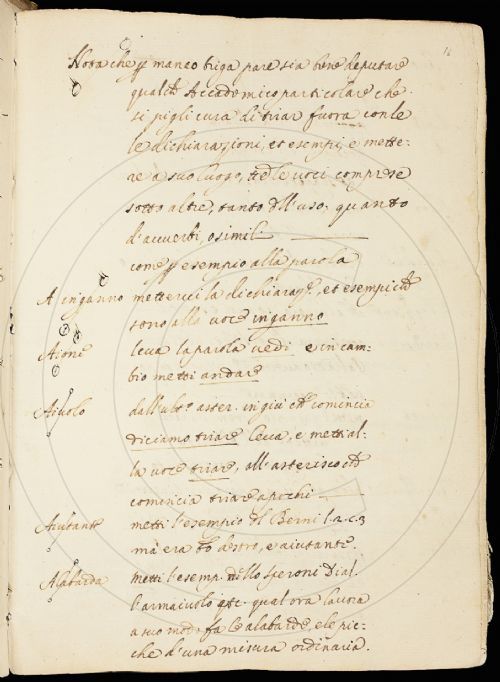 16
Nota che p manco briga pare sia bene deputare
qualch Accademico particolare che
si pigli cura di tirar fuora con le
le dichiarazioni, et esempi, e mette:
re a suo luogo, tte le voci comprese
sotto altre, tanto dll'uso, quanto
d'avverbi, o simili
come p esempio alla parola
A inganno metterci la dichiaraz.e, et esempi ch
sono alla voce inganno
Aione leva la parola vedi e in cam-
bio metti andare
Aiuolo dall'ult.o aster. in giù ch comincia
diciamo tirare leva, e metti al:
la voce tirare, all'asterisco ch
comincia tirare a pochi
Aiutante metti l'esempio dl Berni l. 2. c. 3
ma era to destro, e aiutante.
Alabarda metti l'esemp. dello Speroni Dial.
l'armaiuolo qte. qual ora lavora
a suo modo fa le alabarde, e le pic-
che d'una misura ordinaria.